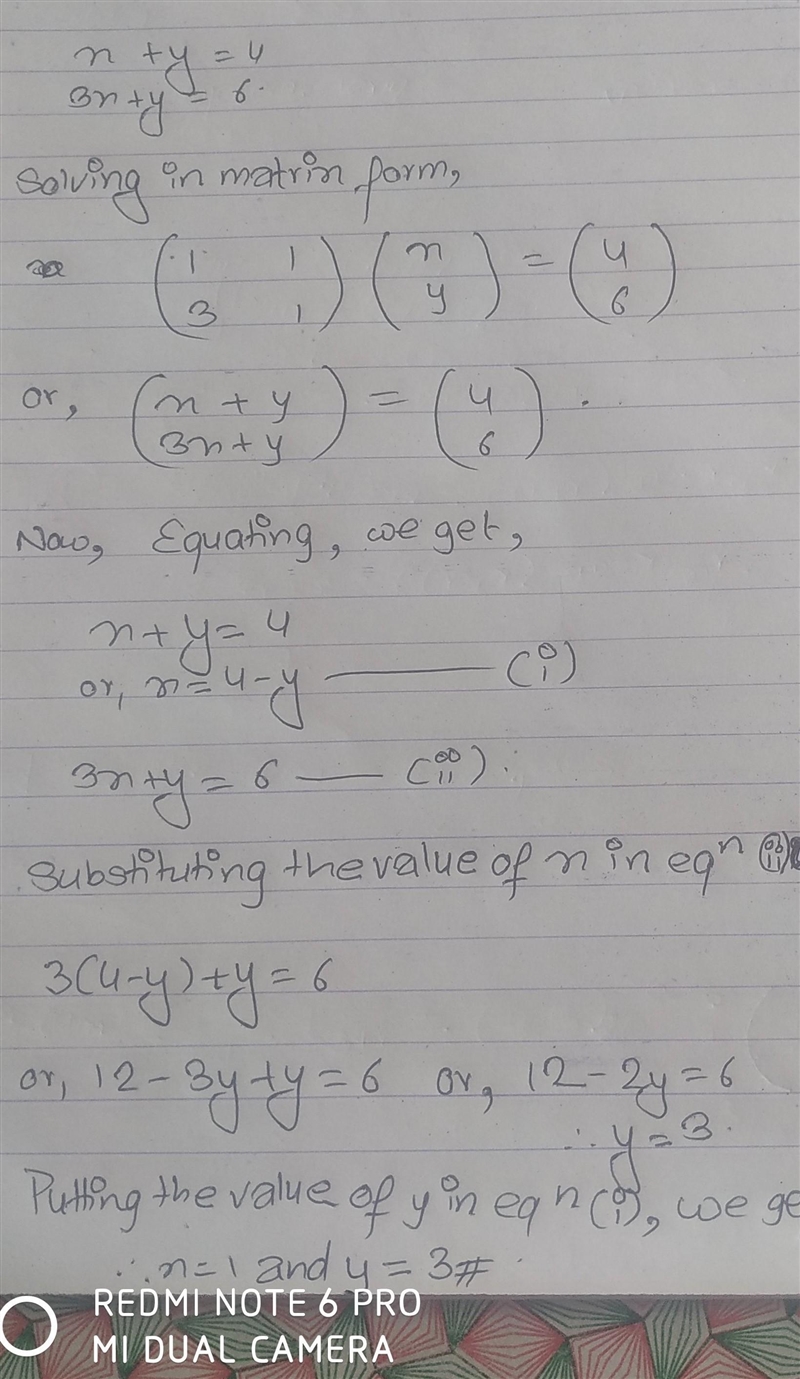 x + y = 4
3x + y = 6.
Solving in matrix form,
(1 1) (x) = (4)
(3 1) (y) (6)
or, (x + y) = (4) .
(3x + y) (6)
Now, Equating, we get,
x + y = 4
or, x = 4 - y ——— (i)
3x + y = 6 —— (ii) .
Substituting the value of x in eqⁿ (ii)
3(4-y) + y = 6
or, 12 - 3y + y = 6 or, 12 - 2y = 6
∴ y = 3.
Putting the value of y in eqⁿ (i), we ge
∴ x = 1 and y = 3 #.
REDMI NOTE 6 PRO
MI DUAL CAMERA